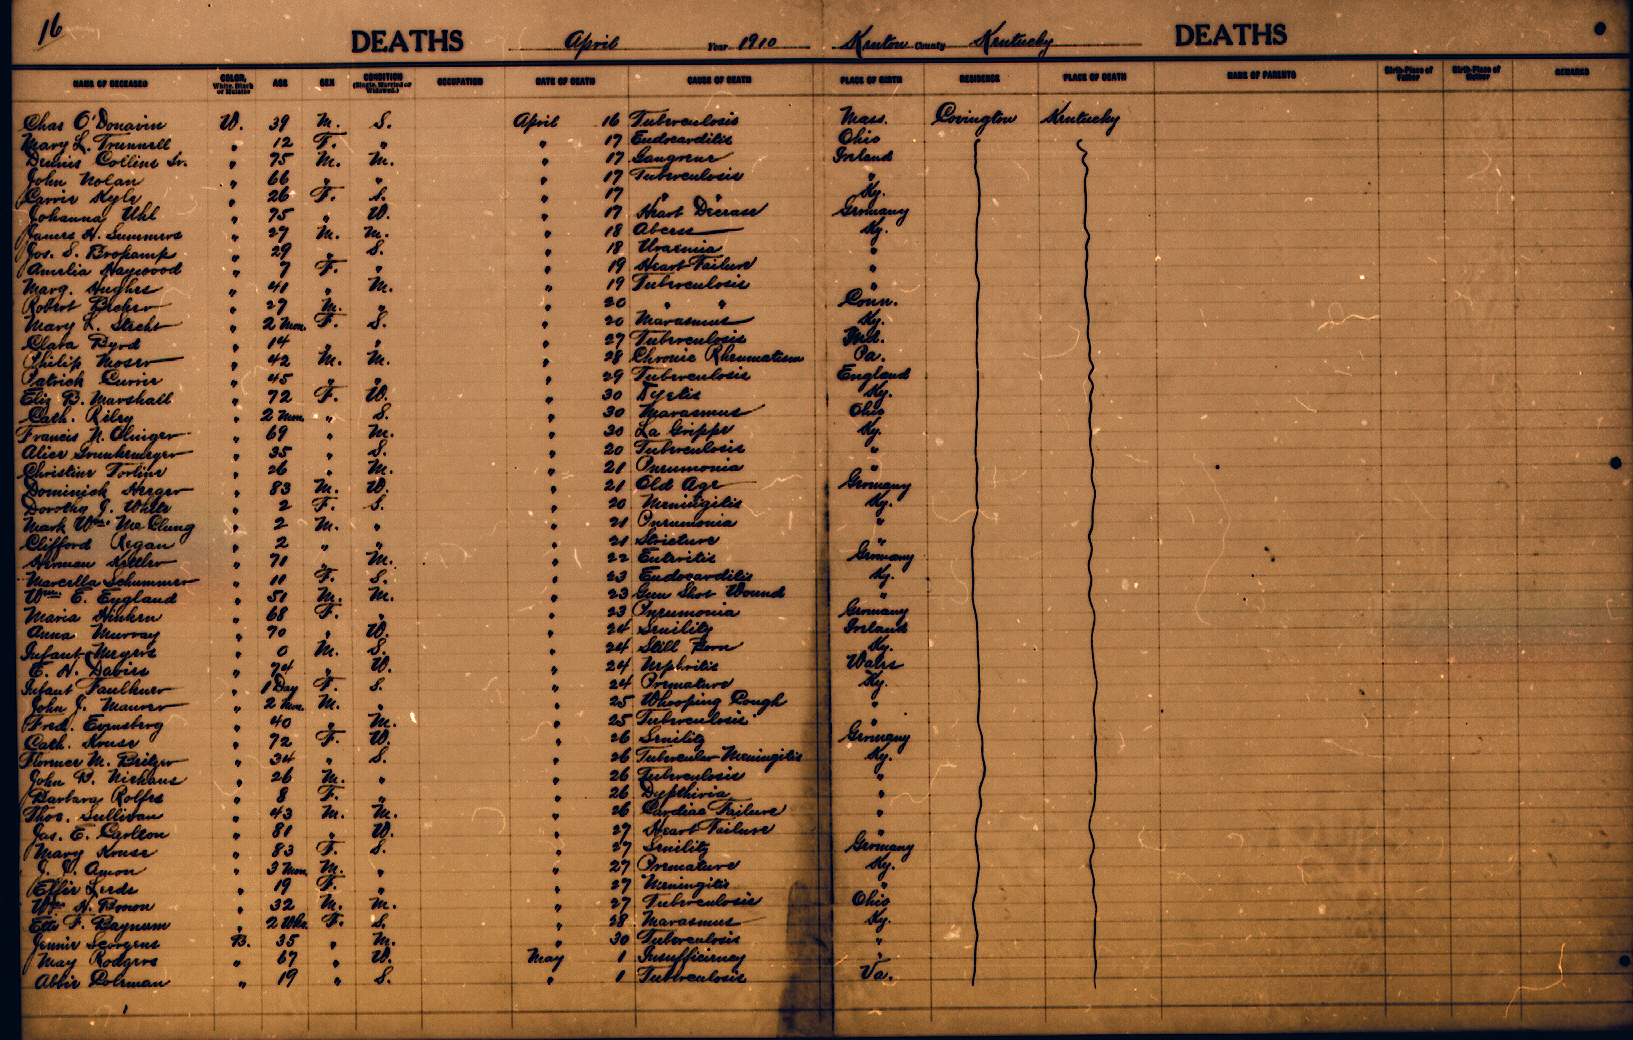 16
DEATHS April Year 1910 Kenton County Kentucky DEATHS
NAME OF DECEASED COLOR, White, Black or Mulatto AGE SEX CONDITION (Single, Married or Widowed.) OCCUPATION DATE OF DEATH CAUSE OF DEATH PLACE OF BIRTH RESIDENCE PLACE OF DEATH NAME OF PARENTS Birth-Place of Father Birth-Place of Mother REMARKS
Chas O'Donavin W. 39 M. S. April 16 Tuberculosis Mass. Covington Kentucky
Mary L. Trunnell " 12 F. " " 17 Endocarditis Ohio
Dennis Collins Sr. " 75 M. M. " 17 Gangrene Ireland
John Nolan " 66 " " " 17 Tuberculosis "
Carrie Kyle " 26 F. S. " 17 " " Ky.
Johanna Uhl " 75 " W. " 17 Heart Disease Germany
James H. Summers " 27 M. M. " 18 Abcess Ky.
Jos. S. Bropamp " 29 " S. " 18 Uraemia "
Amelia Haywood " 7 F. " " 19 Heart Failure "
Marg. Hughes " 41 " M. " 19 Tuberculosis "
Robert Becker " 27 M. " " 20 " " Conn.
Mary L. Stecht " 2 Mon. F. S. " 20 Marasmus Ky.
Clara Byrd " 14 " " " 27 Tuberculosis Ind.
Philip Moser " 42 M. M. " 28 Chronic Rheumatism Pa.
Patrick Currie " 45 " " " 29 Tuberculosis England
Eliz B. Marshall " 72 F. W. " 30 Ky.
Cath. Riley " 2 Mon. " S. " 30 Marasmus Ohio
Francis N. Olinger " 69 " M. " 30 La Grippe Ky.
Alice Grunkemeyer " 35 " S. " 20 Tuberculosis "
Christine Fortine " 26 " M. " 21 Pneumonia "
Dominick Herger " 83 M. W. " 21 Old Age Germany
Dorothy J. White " 2 F. S. " 20 Meningitis Ky.
Mark Wm. McClung " 2 M. " " 21 Pneumonia "
Clifford Regan " 2 " " " 21 Stricture "
Herman Keller " 71 " M. " 22 Enteritis Germany
Marcella Schummer " 11 F. S. " 23 Endocarditis Ky.
Wm. E. England " 51 M. M. " 23 Gun Shot Wound "
Maria Hinken " 68 F. " " 23 Pneumonia Germany
Anna Murray " 90 " W. " 24 Senility Ireland
Infant Meyers " 0 M. S. " 24 Still Born Ky.
E. H. Davies " 74 " W. " 24 Nephritis Wales
Infant Faulkner " 1 Day F. S. " 24 Premature Ky.
John J. Maurer " 2 Mon. M. " " 25 Whooping Cough "
Fred. Ernsberg " 40 " M. " 25 Tuberculosis "
Cath. Kruse " 72 F. W. " 26 Senility Germany
Florence M. Britzer " 34 " S. " 26 Tubercular Meningitis Ky.
John B. Niehaus " 26 M. " " 26 Tuberculosis "
Barbara Rolfes " 8 F. " " 26 Dipthiria "
Thos. Sullivan " 43 M. M. " 26 Cardiac Failure "
Jas. E. Carlton " 81 " W. " 27 Heart Failure "
Mary Kruse " 83 F. S. " 27 Senility Germany
J. D. Amon " 3 Mon. M. " " 27 Premature Ky.
Effie Leeds " 19 F. " " 27 Meningitis "
Wm. H. Boron " 32 M. M. " 27 Tuberculosis Ohio
Etta F. Baynum " 2 Wks. F. S. " 28 Marasmus Ky.
Jennie Scorgens B. 35 " M. " 30 Tuberculosis "
May Rodgers " 67 " W. May 1 Insufficiency "
Abbie Colman " 19 " S. " 1 Tuberculosis Va.